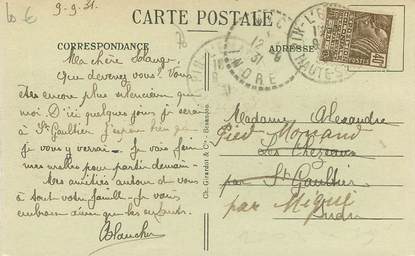 9-9-31.
CARTE POSTALE
CORRESPONDANCE
ADRESSE
Ma chère Solange
Que devenez vous? Vous
êtes encore plus silencieuse que
moi. D'ici quelques jours je serai
à St Gaultier j'espère bien que
je vous y verrai. Je vais faire
mes malles pour partir demain.
Mes amitiés autour de vous
à toute votre famille. Je vous
embrasse ainsi que les enfants.
Blanche
Ch. Girardot & Cie
INDRE
12
31
HAUTE-S
POSTES
Madame Alexandre
Pied Monnand
par St Gaultier
par Migné
Indre